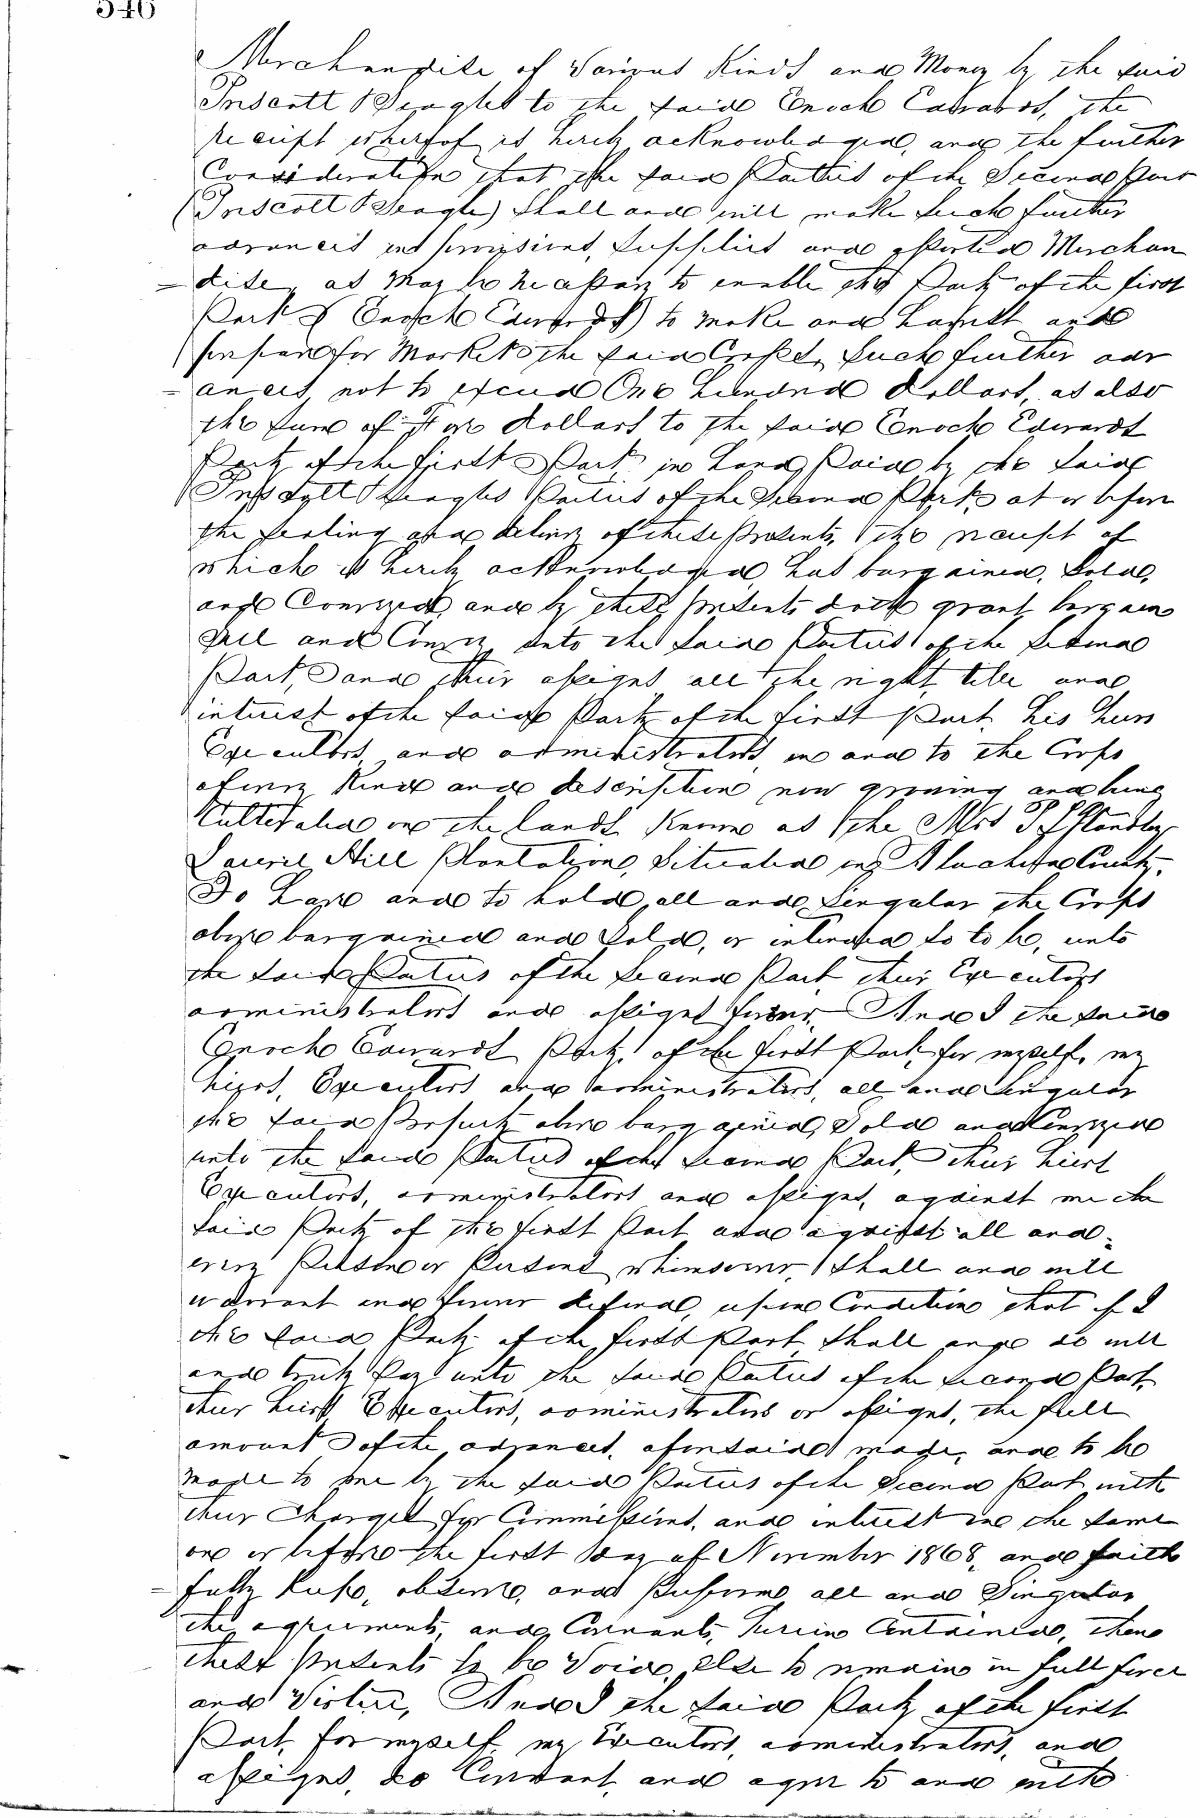 546
Merchandise of Various Kinds and Money by the said
Driscoll & Beagles to the said Enoch Edwards, the
receipt whereof is hereby acknowledged, and the further
Consideration that the said Parties of the Second Part
(Driscoll & Beagle) Shall and will make such further
advances in provisions, Supplies and assorted Merchan
= dise, as May be necessary to enable the Party of the first
Part (Enoch Edwards) to make and harvest and
prepare for Market the said Crops, Such further adv
= ances not to exceed One hundred dollars, as also
the sum of Five dollars to the said Enoch Edwards
Party of the first Part in hand Paid by the said
Beagles Parties of the Second Part, at or before
the sealing and delivery of these Presents, the receipt of
which is hereby acknowledged, has bargained, Sold,
and Conveyed, and by these presents doth grant, bargain
Sell and Convey unto the said Parties of the Second
Part, and their assigns all the right, title and
interest of the said Party of the first Part his heirs
Executors and administrators in and to the Crops
of every Kind and description now growing and being
Cultivated on the lands Known as the Mrs
Laurel Hill Plantation, Situated in Alachua County,
To have and to hold, all and Singular the Crops
above bargained and Sold, or intended so to be, unto
the said Parties of the Second Part their Executors
administrators and assigns forever. And I the said
Enoch Edwards Party of the first Part, for myself, my
heirs, Executors and administrators, all and Singular
the said Property above bargained, Sold and Conveyed
unto the said Parties of the Second Part, their heirs
Executors, administrators and assigns, against me the
said Party of the first Part and against all and
every Person or Persons whomsoever, Shall and will
warrant and forever defend, upon Condition that if I
the said Party of the first Part Shall and do well
and truly Pay unto the said Parties of the second Part,
their heirs Executors, administrators or assigns, the full
amount of the advances, aforesaid made, and to be
made to me by the said Parties of the Second Part with
their Charges for Commissions, and interest on the same
on or before the first day of November 1868, and faith
= fully Keep, observe, and Perform all and Singular
the agreements, and Covenants, herein Contained, then
these presents to be Void, else to remain in full force
and Virtue, And I the said Party of the first
Part, for myself, my Executors, administrators, and
assigns, do Covenant, and agree to and with